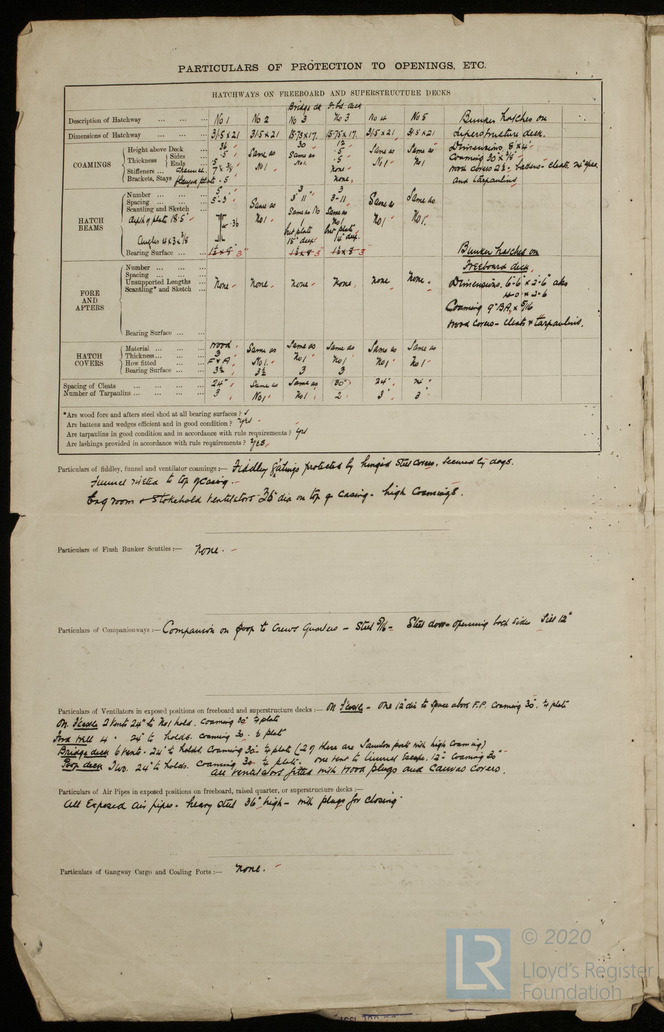 PARTICULARS OF PROTECTION TO OPENINGS, ETC.
HATCHWAYS ON FREEBOARD AND SUPERSTRUCTURE DECKS
Bridge dk
Description of Hatchway No 1 No 2 No 3 No 3 No 4 No 5
Dimensions of Hatchway 31.5 x 21 31.5 x 21 31.5 x 21 31.5 x 21
COAMINGS
Height above Deck 36 30 12
Thickness Sides .5 Same as Same as .5 Same as Same as
Ends .5 No 1 No 1 .5 No 1 No 1
Stiffeners none
Brackets, Stays none
Bunker hatches on
superstructure deck.
Dimensions. 8 x 4
Coaming 30"
and tarpaulins
HATCH BEAMS
Number 5 3 3
Spacing 5-3 3-11
Scantling and Sketch Same as No 1 Same as No 1 Same as No 1 Same as No 1 Same as No 1
depth of plate 18.5
.36
Angles 4 x 3 x 3/8
Bearing Surface 3" 3 3
Bunker hatches on
Freeboard deck.
Dimensions. 6-6 x 2-6 also
4-0 x 2-6
Coaming 9" BA x 5/16
Wood covers - cleats & tarpaulins.
FORE AND AFTERS
Number
Spacing
Unsupported Lengths None none none none none none
Scantling* and Sketch
Bearing Surface
HATCH COVERS
Material wood Same as Same as Same as Same as Same as
Thickness 3 No 1 No 1 No 1 No 1 No 1
How fitted F & A
Bearing Surface 3½ 3½ 3 3
Spacing of Cleats 24" Same as Same as 30" 24" 24"
Number of Tarpaulins 3 No 1 No 1 2 3 3
*Are wood fore and afters steel shod at all bearing surfaces?
Are battens and wedges efficient and in good condition? yes
Are tarpaulins in good condition and in accordance with rule requirements? yes
Are lashings provided in accordance with rule requirements? yes
Particulars of fiddley, funnel and ventilator coamings:— Fiddley gratings protected by hinged steel covers, secured by dogs.
Funnel riveted to top of casing.
Eng room & Stokehold Ventilators 36" dia on top of casing - high coamings.
Particulars of Flush Bunker Scuttles:— None.
Particulars of Companionways:— Companion on poop to Crews Quarters - Steel 5/16 - Steel door - opening both sides Sill 12"
Particulars of Ventilators in exposed positions on freeboard and superstructure decks:— On F'castle - One 12" dia to space above F.P. Coaming 30" plate
On F'castle 2 Vents 24" to No 1 hold. Coaming 30" plate
Ford Well 4 24" to holds. coaming 30" plate
Bridge deck 6 vents - 24" to holds Coaming 30" plate (2 of these are Samson posts with high coaming)
Poop deck Two 24" to holds. Coaming 30" plate. One vent to tunnel escape. 12" Coaming 30"
All Ventilators fitted with wood plugs and canvas covers.
Particulars of Air Pipes in exposed positions on freeboard, raised quarter, or superstructure decks:—
All Exposed air pipes - heavy steel 36" high - with plugs for closing
Particulars of Gangway Cargo and Coaling Ports:— None.
LR © 2020
Lloyd's Register
Foundation